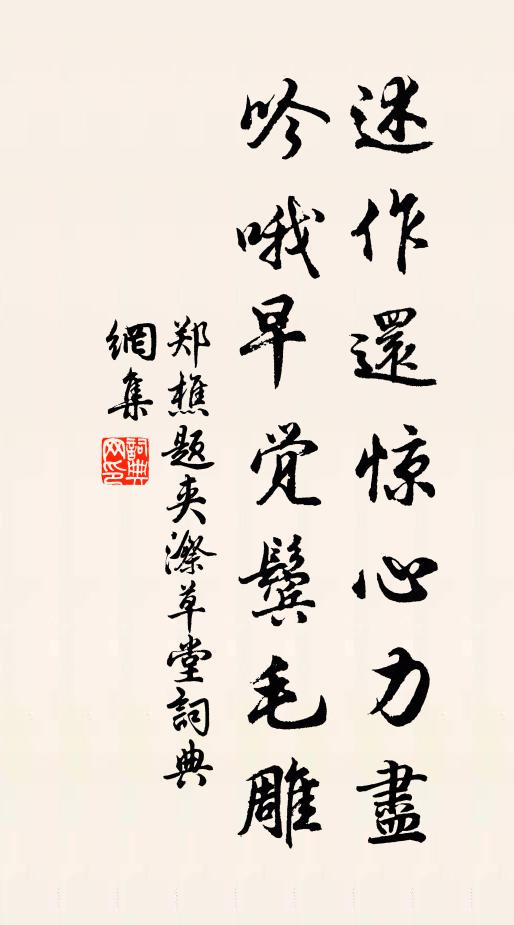 述作還惊心力盡
吟哦早觉鬓毛雕
郑樵题夹漈草堂詞典
網集
詞典网印